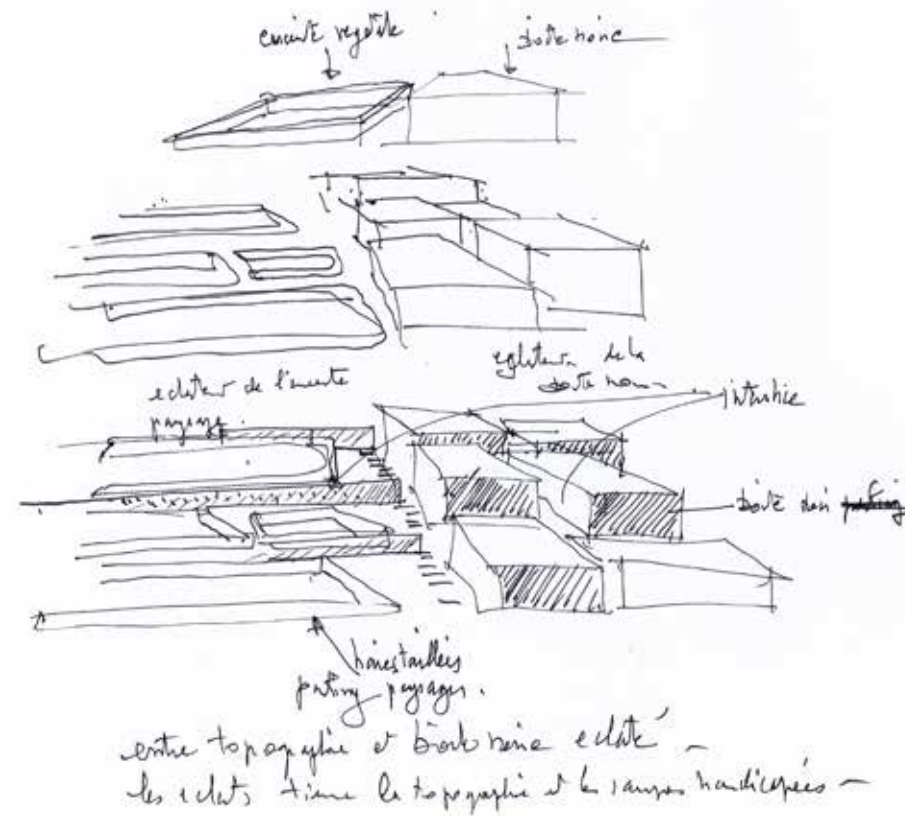 enceinte végétale
boîte noire
eclateur de l'enceinte
paysage.
de la
boîte noire
interstice
boîte noire parking
haies taillées
parking paysager.
entre topographie et boîte noire eclaté
les eclats tienne la topographie et les rampes handicapées